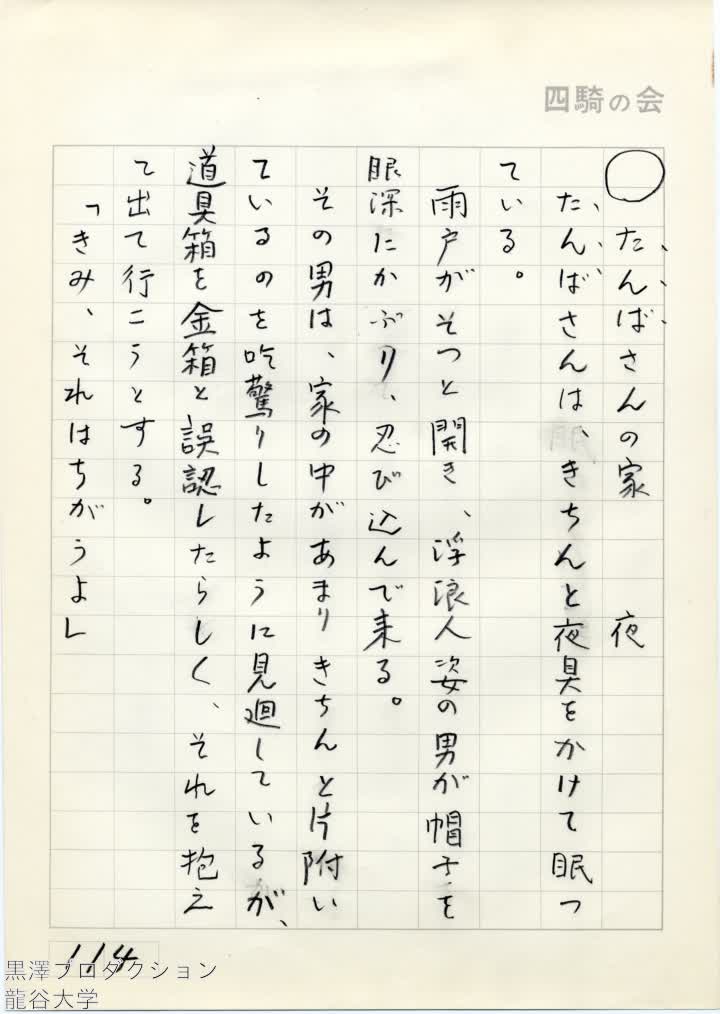 四騎の会
○たんばさんの家　夜
たんばさんは、きちんと夜具をかけて眠つ
ている。
雨戸がそつと開き、浮浪人姿の男が帽子を
眼深にかぶり、忍び込んで来る。
その男は、家の中があまりきちんと片附い
ているのを吃驚りしたように見廻しているが、
道具箱を金箱と誤認したらしく、それを抱え
て出て行こうとする。
「きみ、それはちがうよ」
114
黒澤プロダクション
龍谷大学